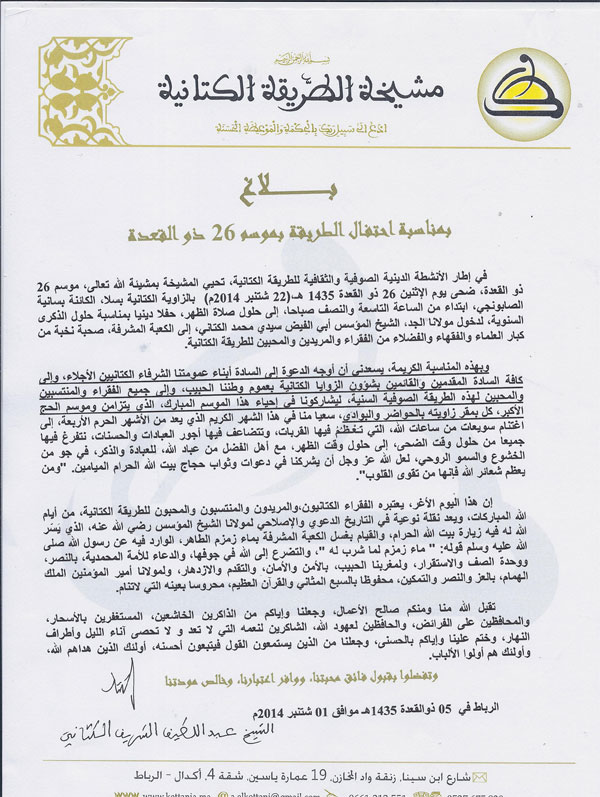 بسم الله الرحمن الرحيم
مشيخة الطريقة الكتانية
ادع إلى سبيل ربك بالحكمة والموعظة الحسنة
بـــلاغ
بمناسبة احتفال الطريقة بموسم 26 ذو القعدة
في إطار الأنشطة الدينية الصوفية والثقافية للطريقة الكتانية، تحيي المشيخة بمشيئة الله تعالى، موسم 26
ذو القعدة، ضحى يوم الإثنين 26 ذو القعدة 1435 هـ(22 شتنبر 2014م) بالزاوية الكتانية بسلا، الكائنة بسانية
الصابونجي، ابتداء من الساعة التاسعة والنصف صباحا، إلى حلول صلاة الظهر، حفلا دينيا بمناسبة حلول الذكرى
السنوية، لدخول مولانا الجد، الشيخ المؤسس أبي الفيض سيدي محمد الكتاني، إلى الكعبة المشرفة، صحبة نخبة من
كبار العلماء والفقهاء والفضلاء من الفقراء والمريدين والمحبين للطريقة الكتانية.
وبهذه المناسبة الكريمة، يسعدني أن أوجه الدعوة إلى السادة أبناء عمومتنا الشرفاء الكتانيين الأجلاء، وإلى
كافة السادة المقدمين والقائمين بشؤون الزوايا الكتانية بعموم وطننا الحبيب، وإلى جميع الفقراء والمنتسبين
والمحبين لهذه الطريقة الصوفية السنية، ليشاركونا في إحياء هذا الموسم المبارك، الذي يتزامن وموسم الحج
الأكبر، كل بمقر زاويته بالحواضر والبوادي، سعيا منا في هذا الشهر الكريم الذي يعد من الأشهر الحرم الأربعة، إلى
اغتنام سويعات من ساعات الله، التي تعظم فيها القربات، وتتضاعف فيها أجور العبادات والحسنات، نتفرغ فيها
جميعا من حلول وقت الضحى، إلى حلول وقت الظهر، مع أهل الفضل من عباد الله، للعبادة والذكر، في جو من
الخشوع والسمو الروحي، لعل الله عز وجل أن يشركنا في دعوات وثواب حجاج بيت الله الحرام الميامين. "ومن
يعظم شعائر الله فإنها من تقوى القلوب".
إن هذا اليوم الأغر، يعتبره الفقراء الكتانيون،والمريدون والمنتسبون والمحبون للطريقة الكتانية، من أيام
الله المباركات، ويعد نقلة نوعية في التاريخ الدعوي والإصلاحي لمولانا الشيخ المؤسس رضي الله عنه، الذي يَسّر
الله له فيه زيارة بيت الله الحرام، والقيام بغسل الكعبة المشرفة بماء زمزم الطاهر، الوارد فيه عن رسول الله صلى
الله عليه وسلم قوله: " ماء زمزم لما شرب له "، والتضرع إلى الله في جوفها، والدعاء للأمة المحمدية، بالنصر،
ووحدة الصف والاستقرار، ولمغربنا الحبيب، بالأمن والأمان، والتقدم والازدهار، ولمولانا أمير المؤمنين الملك
الهمام، بالعز والنصر والتمكين، محفوظا بالسبع المثاني والقرآن العظيم، محروسا بعينه التي لاتنام.
تقبل الله منا ومنكم صالح الأعمال، وجعلنا وإياكم من الذاكرين الخاشعين، المستغفرين بالأسحار،
والمحافظين على الفرائض، والحافظين لعهود الله، الشاكرين لنعمه التي لا تعد و لا تحصى آناء الليل وأطراف
النهار، وختم علينا وإياكم بالحسنى، وجعلنا من الذين يستمعون القول فيتبعون أحسنه، أولئك الذين هداهم الله،
وأولئك هم أولوا الألباب.
وتفضلوا بقبول فائق محبتنا، ووافر اعتبارنا، وخالص مودتنا
الرباط في 05 ذوالقعدة 1435هـ موافق 01 شتنبر 2014م
الشيخ عبد اللطيف الشريف الكتاني
شارع ابن سينا، زنقة واد المخازن، 19 عمارة ياسين، شقة 4، أكدال - الرباط